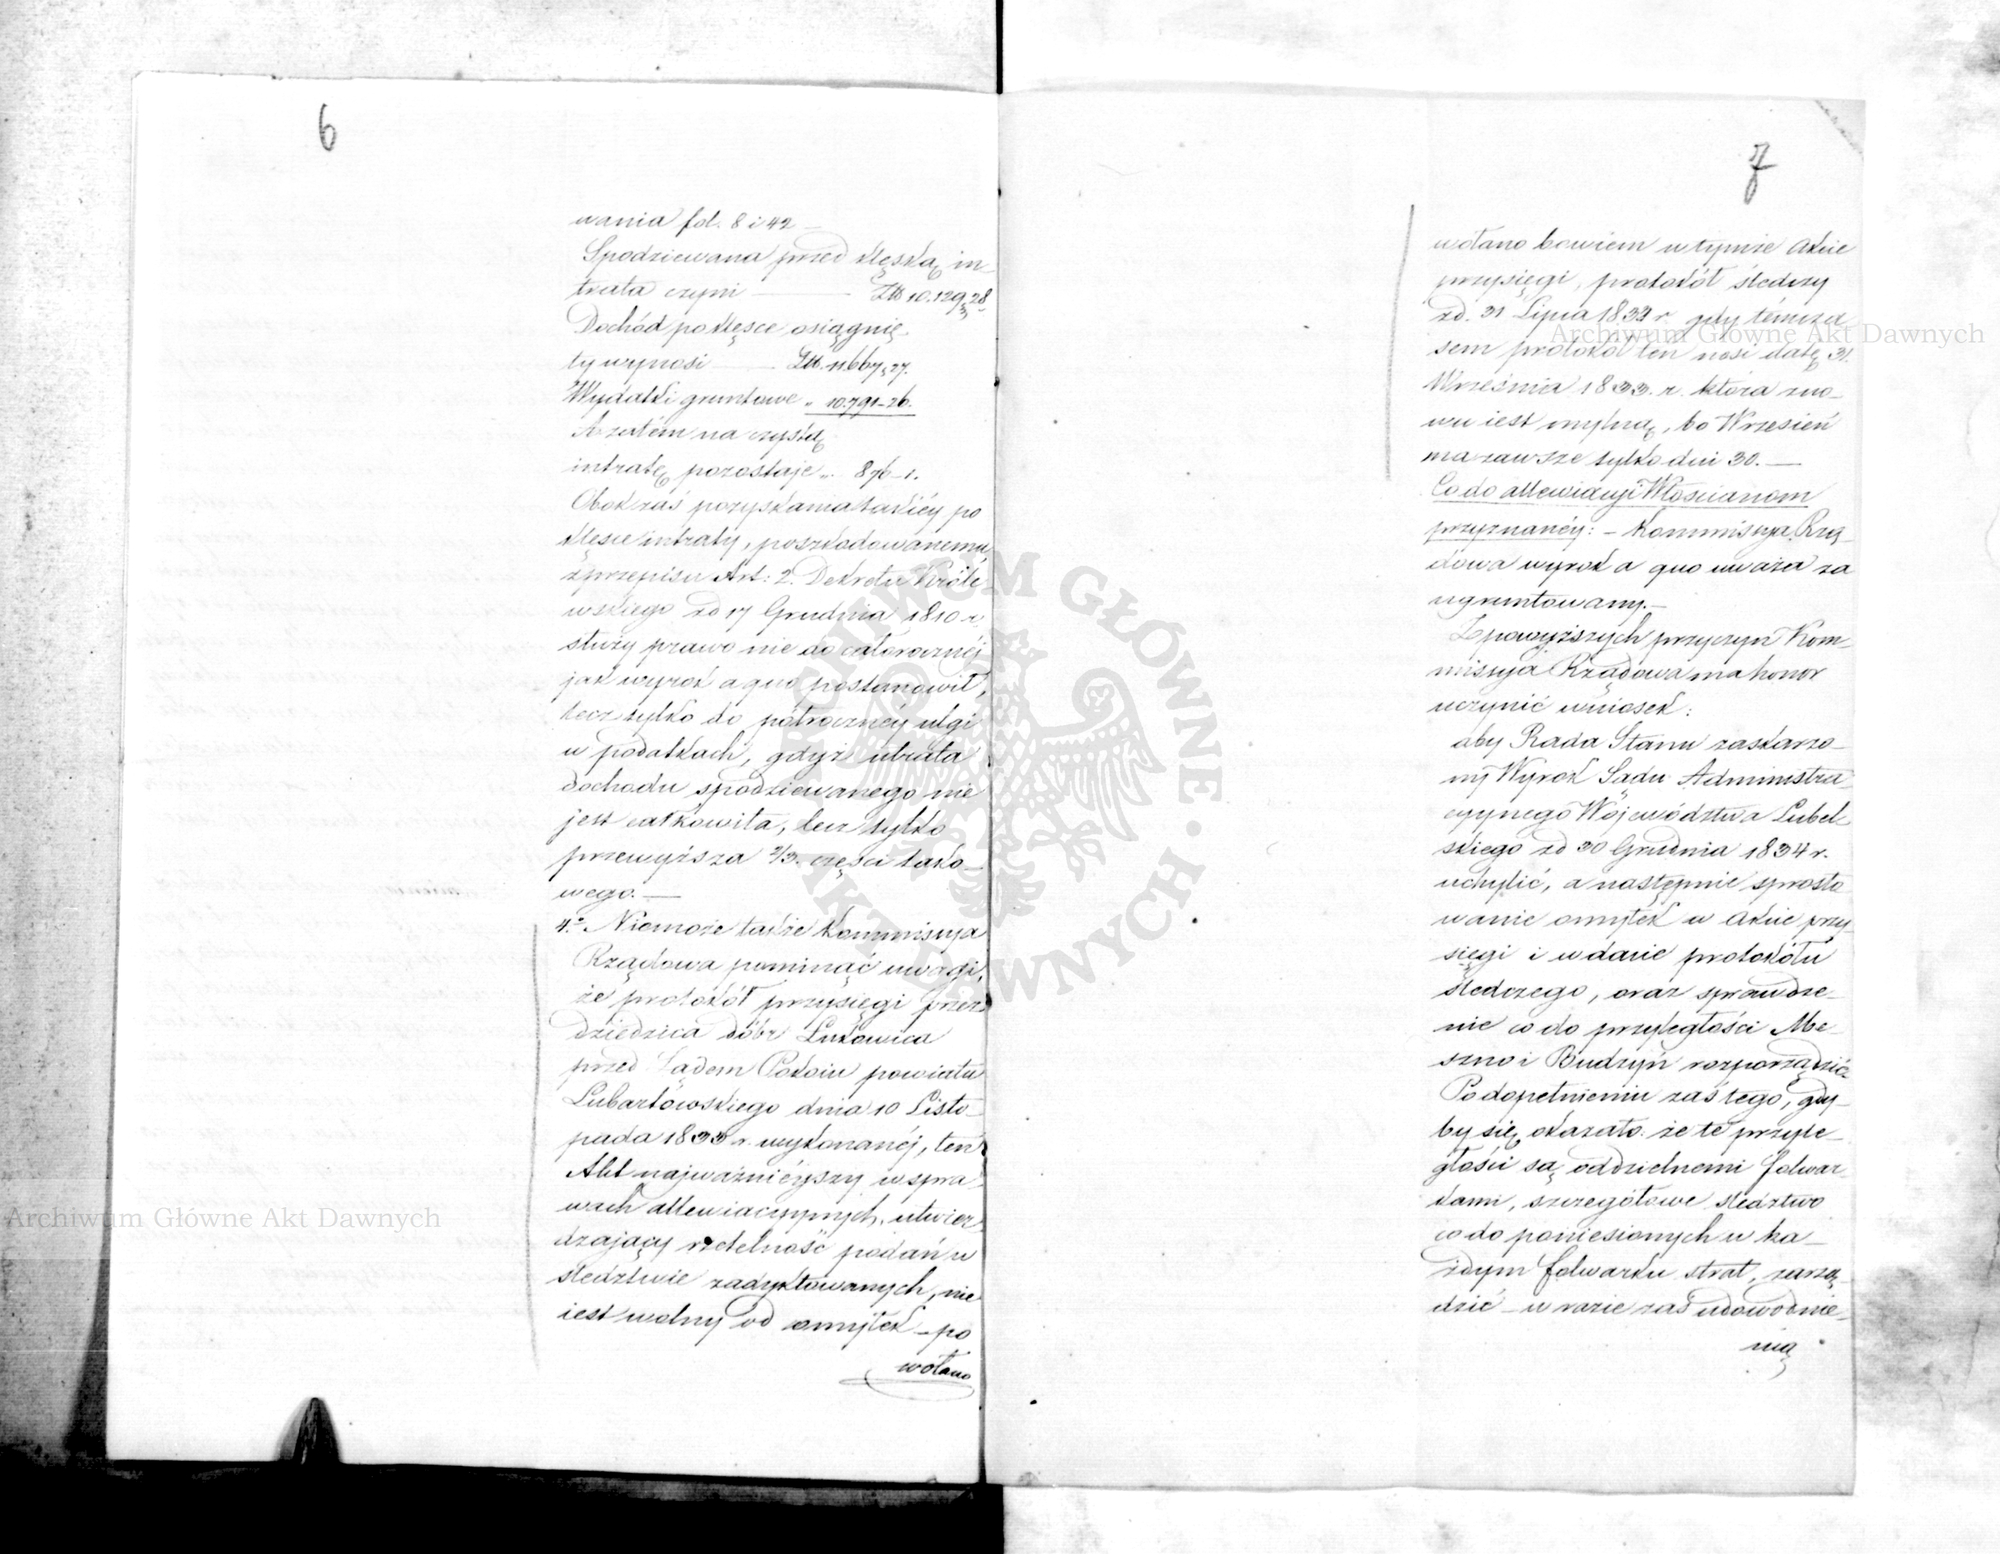 6
wania fol. 8 i 42 —
Spodziewana przed klęską in-
trata czyni — Złt 10.129,28
Dochód po klęsce osiągnię-
ty wynosi — Złt. 11.667,27.
Wydatki gruntowe „ 10.791-26.
A zatém na czystą
intratę pozostaje „ 876-1.
Obok zaś pozyskania takiéy po
klęsce intraty, poszkodowanemu
z przepisu Art: 2. Dekretu Króle-
wskiego zd 17 Grudnia 1810 r.
służy prawo nie do całorocznéj
jak wyrok a quo postanowił,
lecz tylko do półrocznéy ulgi
w podatkach, gdyż utrata
dochodu spodziewanego nie
jest całkowita, lecz tylko
przewyższa 2/3. części tako-
wego. —
4.o Niemoże także Kommissya
Rządowa pominąć uwagi,
że protokół przysięgi przez
dziedzica dóbr Lukowica
przed Sądem Pokoiu powiatu
Lubartowskiego dnia 10 Listo-
pada 1833 r. wykonanéj, ten
Akt najważniéyszy w spra-
wach allewiacyynych, utwier-
dzający rzetelność podań w
śledztwie zadyktowanych, nie
iest wolny od omyłek – po
wołano
7
wołano bowiem w tymże Akcie
przysięgi, protokół śledczy
zd. 31 Lipca 1834 r gdy témcza
sem protokół ten nosi datę 31.
Września 1833. r. która zno-
wu iest mylną, bo Wrzesień
ma zawsze tylko dni 30. —
Co do allewiacyi Włościanom
przyznanéy: – Kommissya Rzą-
dowa wyrok a quo uważa za
ugruntowany. —
Z powyższych przyczyn Kom-
missya Rządowa ma honor
uczynić wniosek:
aby Rada Stanu zaskarżo-
ny Wyrok Sądu Administra-
cyynego Województwa Lubel-
skiego zd 30 Grudnia 1834 r.
uchylić, a następnie sprosto
wanie omyłek w Akcie przy
sięgi i w dacie protokółu
śledczego, oraz sprawdze-
nie co do przyległości Me-
szno i Budzyń rozporządzić
Po dopełnieniu zaś tego, gdy-
by się okazało że te przyle-
głości są oddzielnemi folwar
kami, szczegółowe śledztwo
co do poniesionych w ka-
żdym folwarku strat, zarzą-
dzić – w razie zaś udowodnie-
nia
Archiwum Główne Akt Dawnych
Archiwum Główne Akt Dawnych
ARCHIWUM GŁÓWNE AKT DAWNYCH